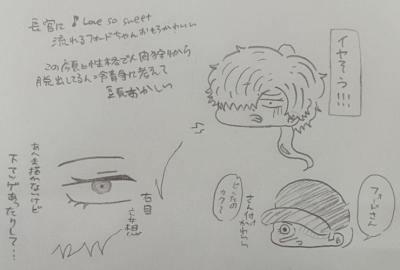 長官に♪Love so sweet
流れるフォードちゃんおもろかわいい
この身長と性格で人肉狩りから
脱出してるん冷静に考えて
おかしい
イヤそう!!!
フォードさん
さん付けかわいい
右目
妄想
あんま描かないけど
下まつげあったりして…